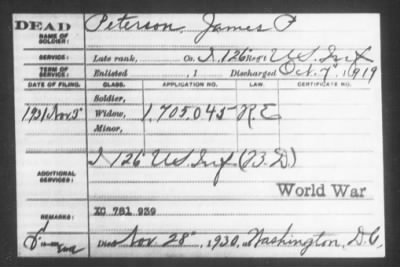 DEAD
NAME OF SOLDIER: Peterson, James P
SERVICE: Late rank, Co. I, 126 Reg't U.S. Inf
TERM OF SERVICE: Enlisted , 1 Discharged Oct. 7, 1919
DATE OF FILING. CLASS. APPLICATION NO. LAW. CERTIFICATE NO.
Soldier,
1931 Nov 5 Widow, 1,705,045 RE
Minor,
ADDITIONAL SERVICES: I 126 U.S. Inf (B.D)
World War
REMARKS: XC 781 939
Died Nov. 28, 1930, at Washington, D.C.